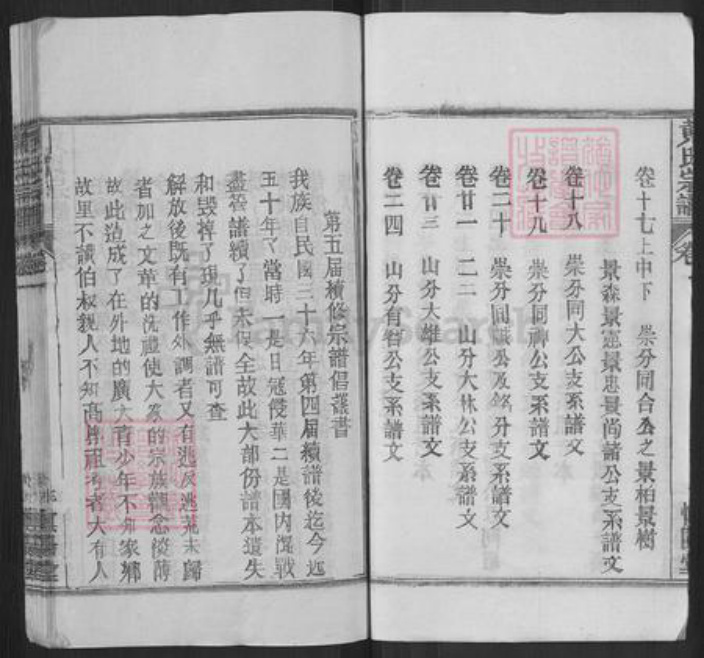 黃氏宗譜
卷十七上中下 崇分同合公之景柏景樹
景森景憲景忠景尚諸公支系譜文
卷十八 崇分同大公支系譜文
卷十九 崇分同禪公支系譜文
卷二十 崇分同 公及銘分支系譜文
卷廿一 二二 山分大休公支系譜文
卷廿三 山分大雄公支系譜文
卷二四 山分有容公支系譜文
第五届續修宗譜倡議書
我族自民國三十六年第四届續譜後迄今近
五十年了當時一是日寇侵華二是國内混戰
盡管譜續了但未保全故此大部份譜本遺失
和毀掉了現几乎無譜可查
解放後既有工作外調者又有逃反逃荒未歸
者加之文革的洗禮使大家的宗族觀念從薄
故此造成了在外地的廣大青少年不知家鄉
故里不識伯叔親人不知高 祖考者大有人
FamilySearch